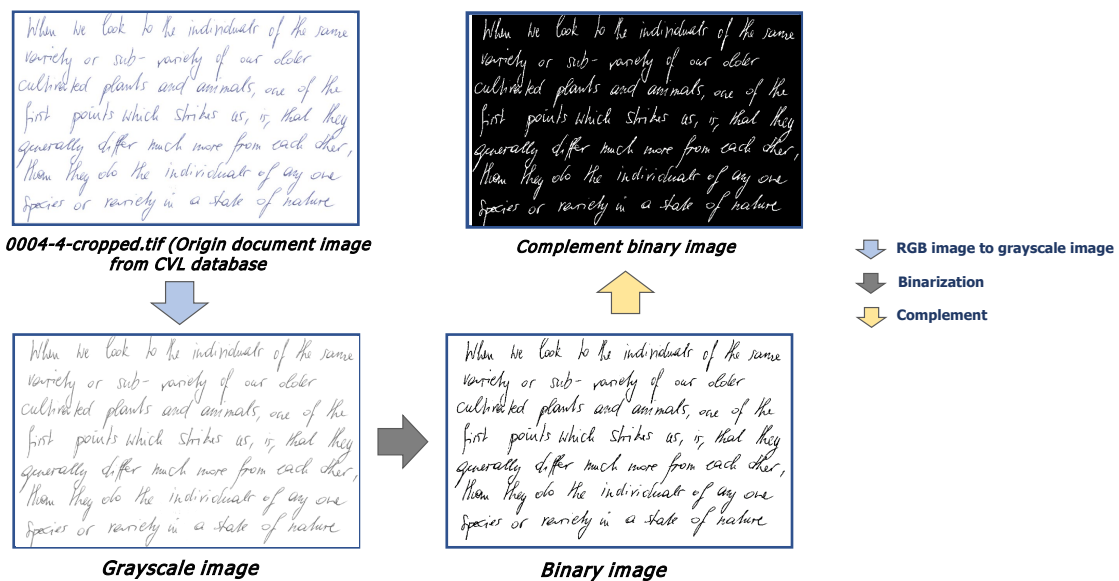 When we look to the individuals of the same
variety or sub- variety of our older
cultivated plants and animals, one of the
first points which strikes us, is, that they
generally differ much more from each other,
than they do the individuals of any one
species or variety in a state of nature
0004-4-cropped.tif (Origin document image
from CVL database
When we look to the individuals of the same
variety or sub- variety of our older
cultivated plants and animals, one of the
first points which strikes us, is, that they
generally differ much more from each other,
than they do the individuals of any one
species or variety in a state of nature
Complement binary image
RGB image to grayscale image
Binarization
Complement
When we look to the individuals of the same
variety or sub- variety of our older
cultivated plants and animals, one of the
first points which strikes us, is, that they
generally differ much more from each other,
than they do the individuals of any one
species or variety in a state of nature
Grayscale image
When we look to the individuals of the same
variety or sub- variety of our older
cultivated plants and animals, one of the
first points which strikes us, is, that they
generally differ much more from each other,
than they do the individuals of any one
species or variety in a state of nature
Binary image